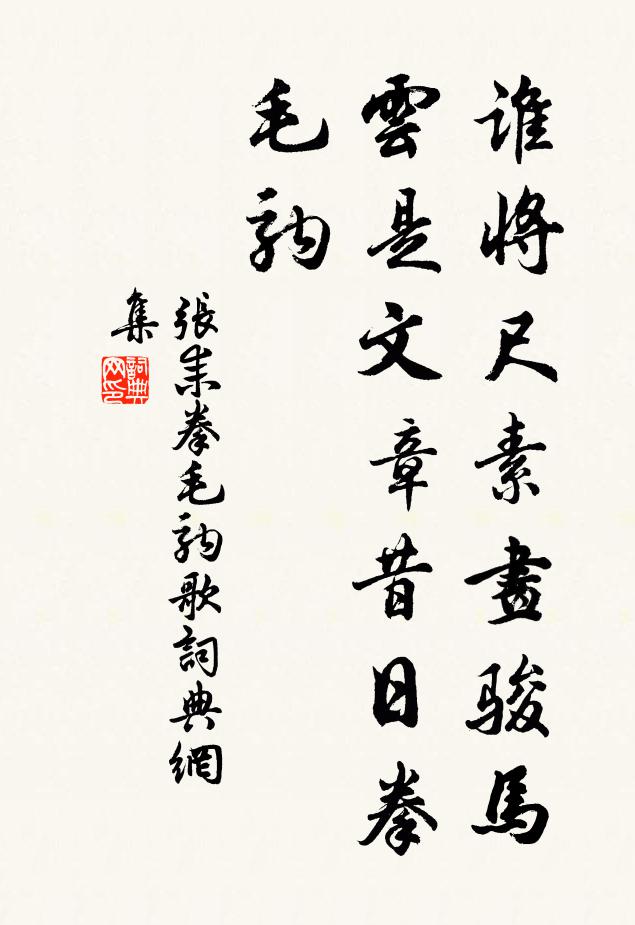 誰將尺素畫駿馬
雲是文章昔日拳
毛騧
張耒拳毛騧歌詞典網
集
詞典
网印